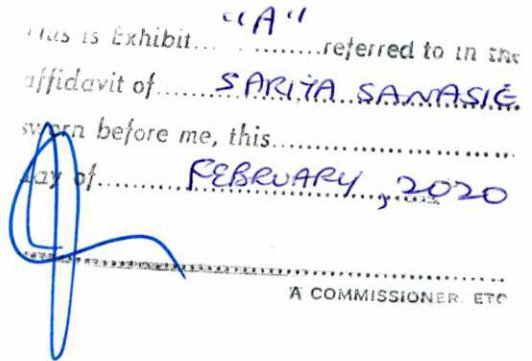 This is Exhibit... "A" ..........referred to in the
affidavit of...... SARITA SANASIE
sworn before me, this....................
day of........... FEBRUARY, 2020
A COMMISSIONER ETC